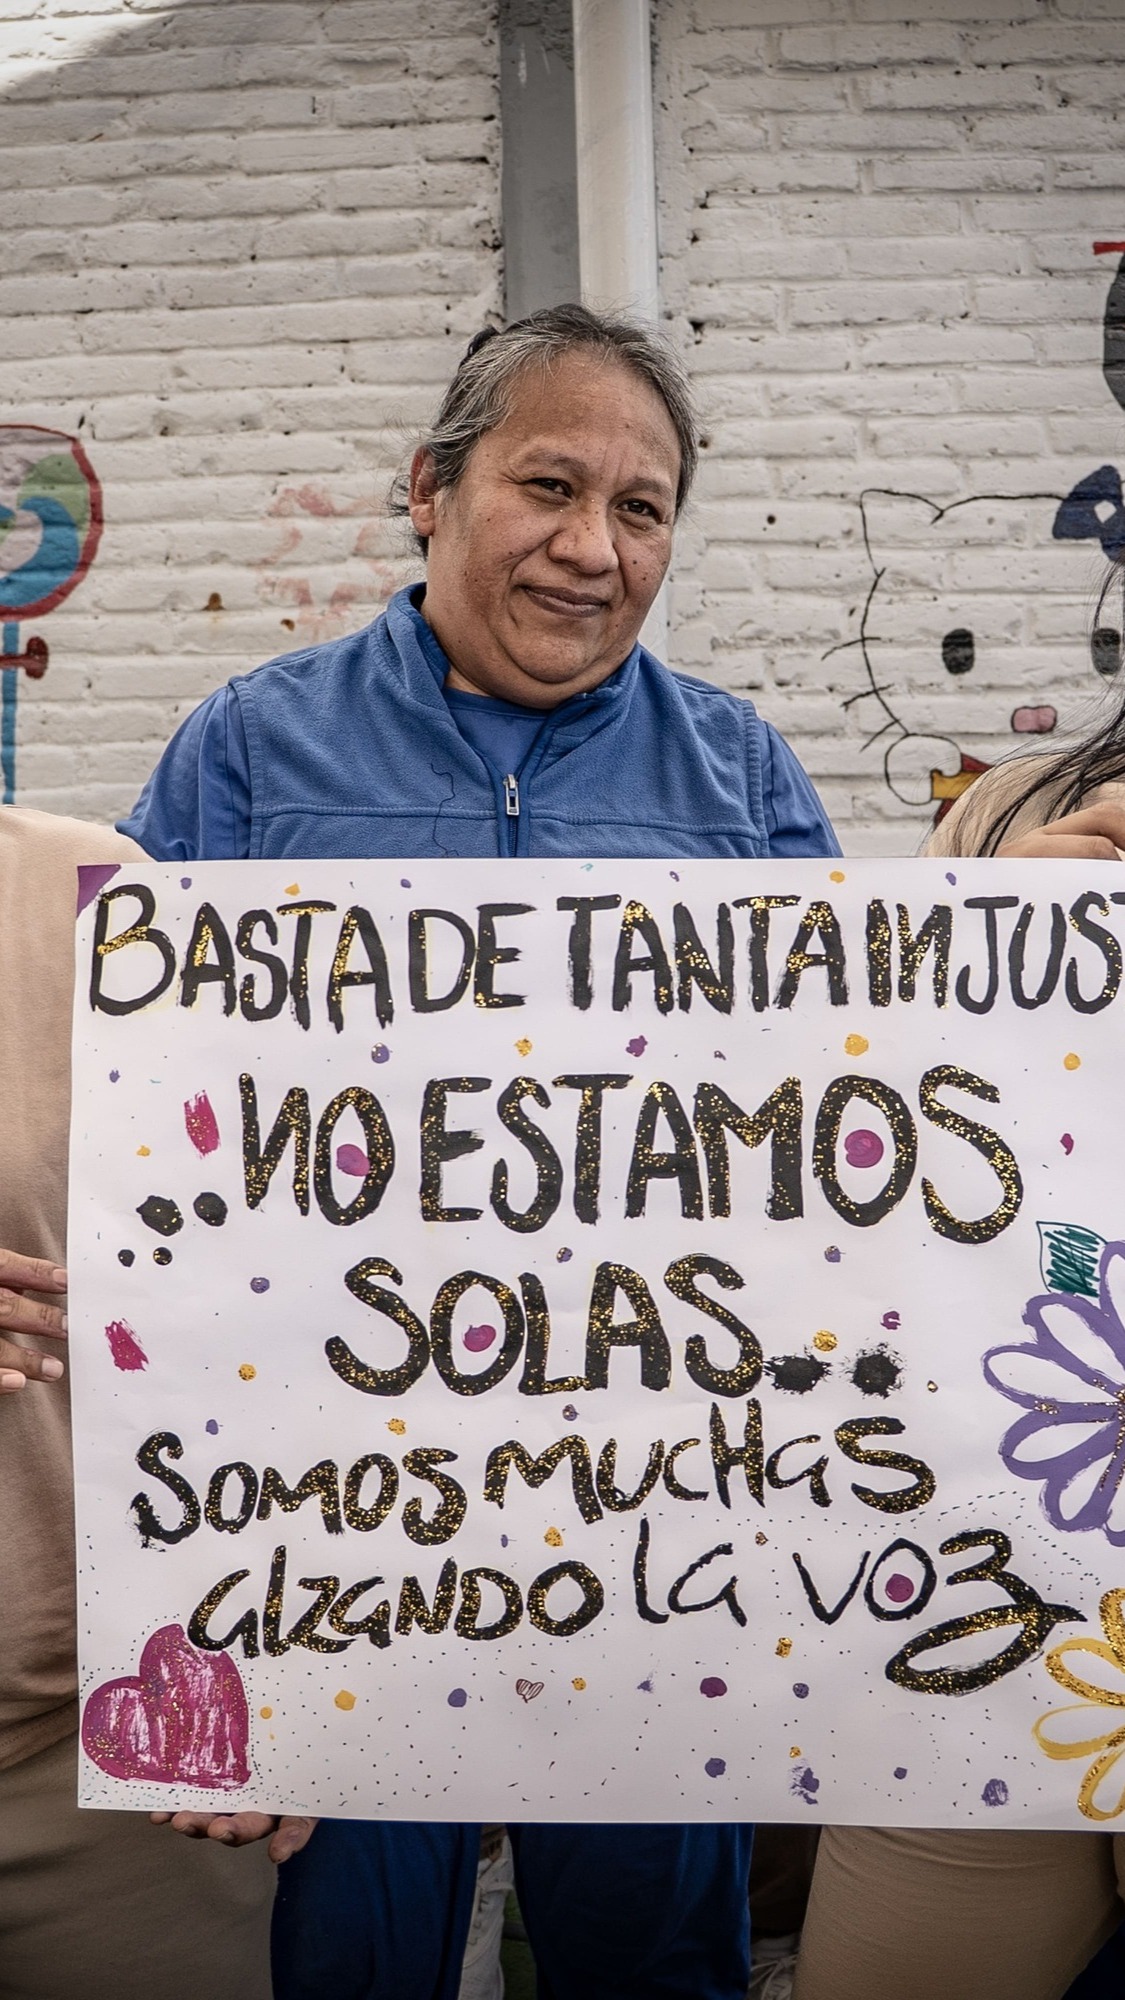 BASTA DE TANTA INJUST
..NO ESTAMOS
SOLAS..
SOMOS MUCHAS
alzANDO la voz